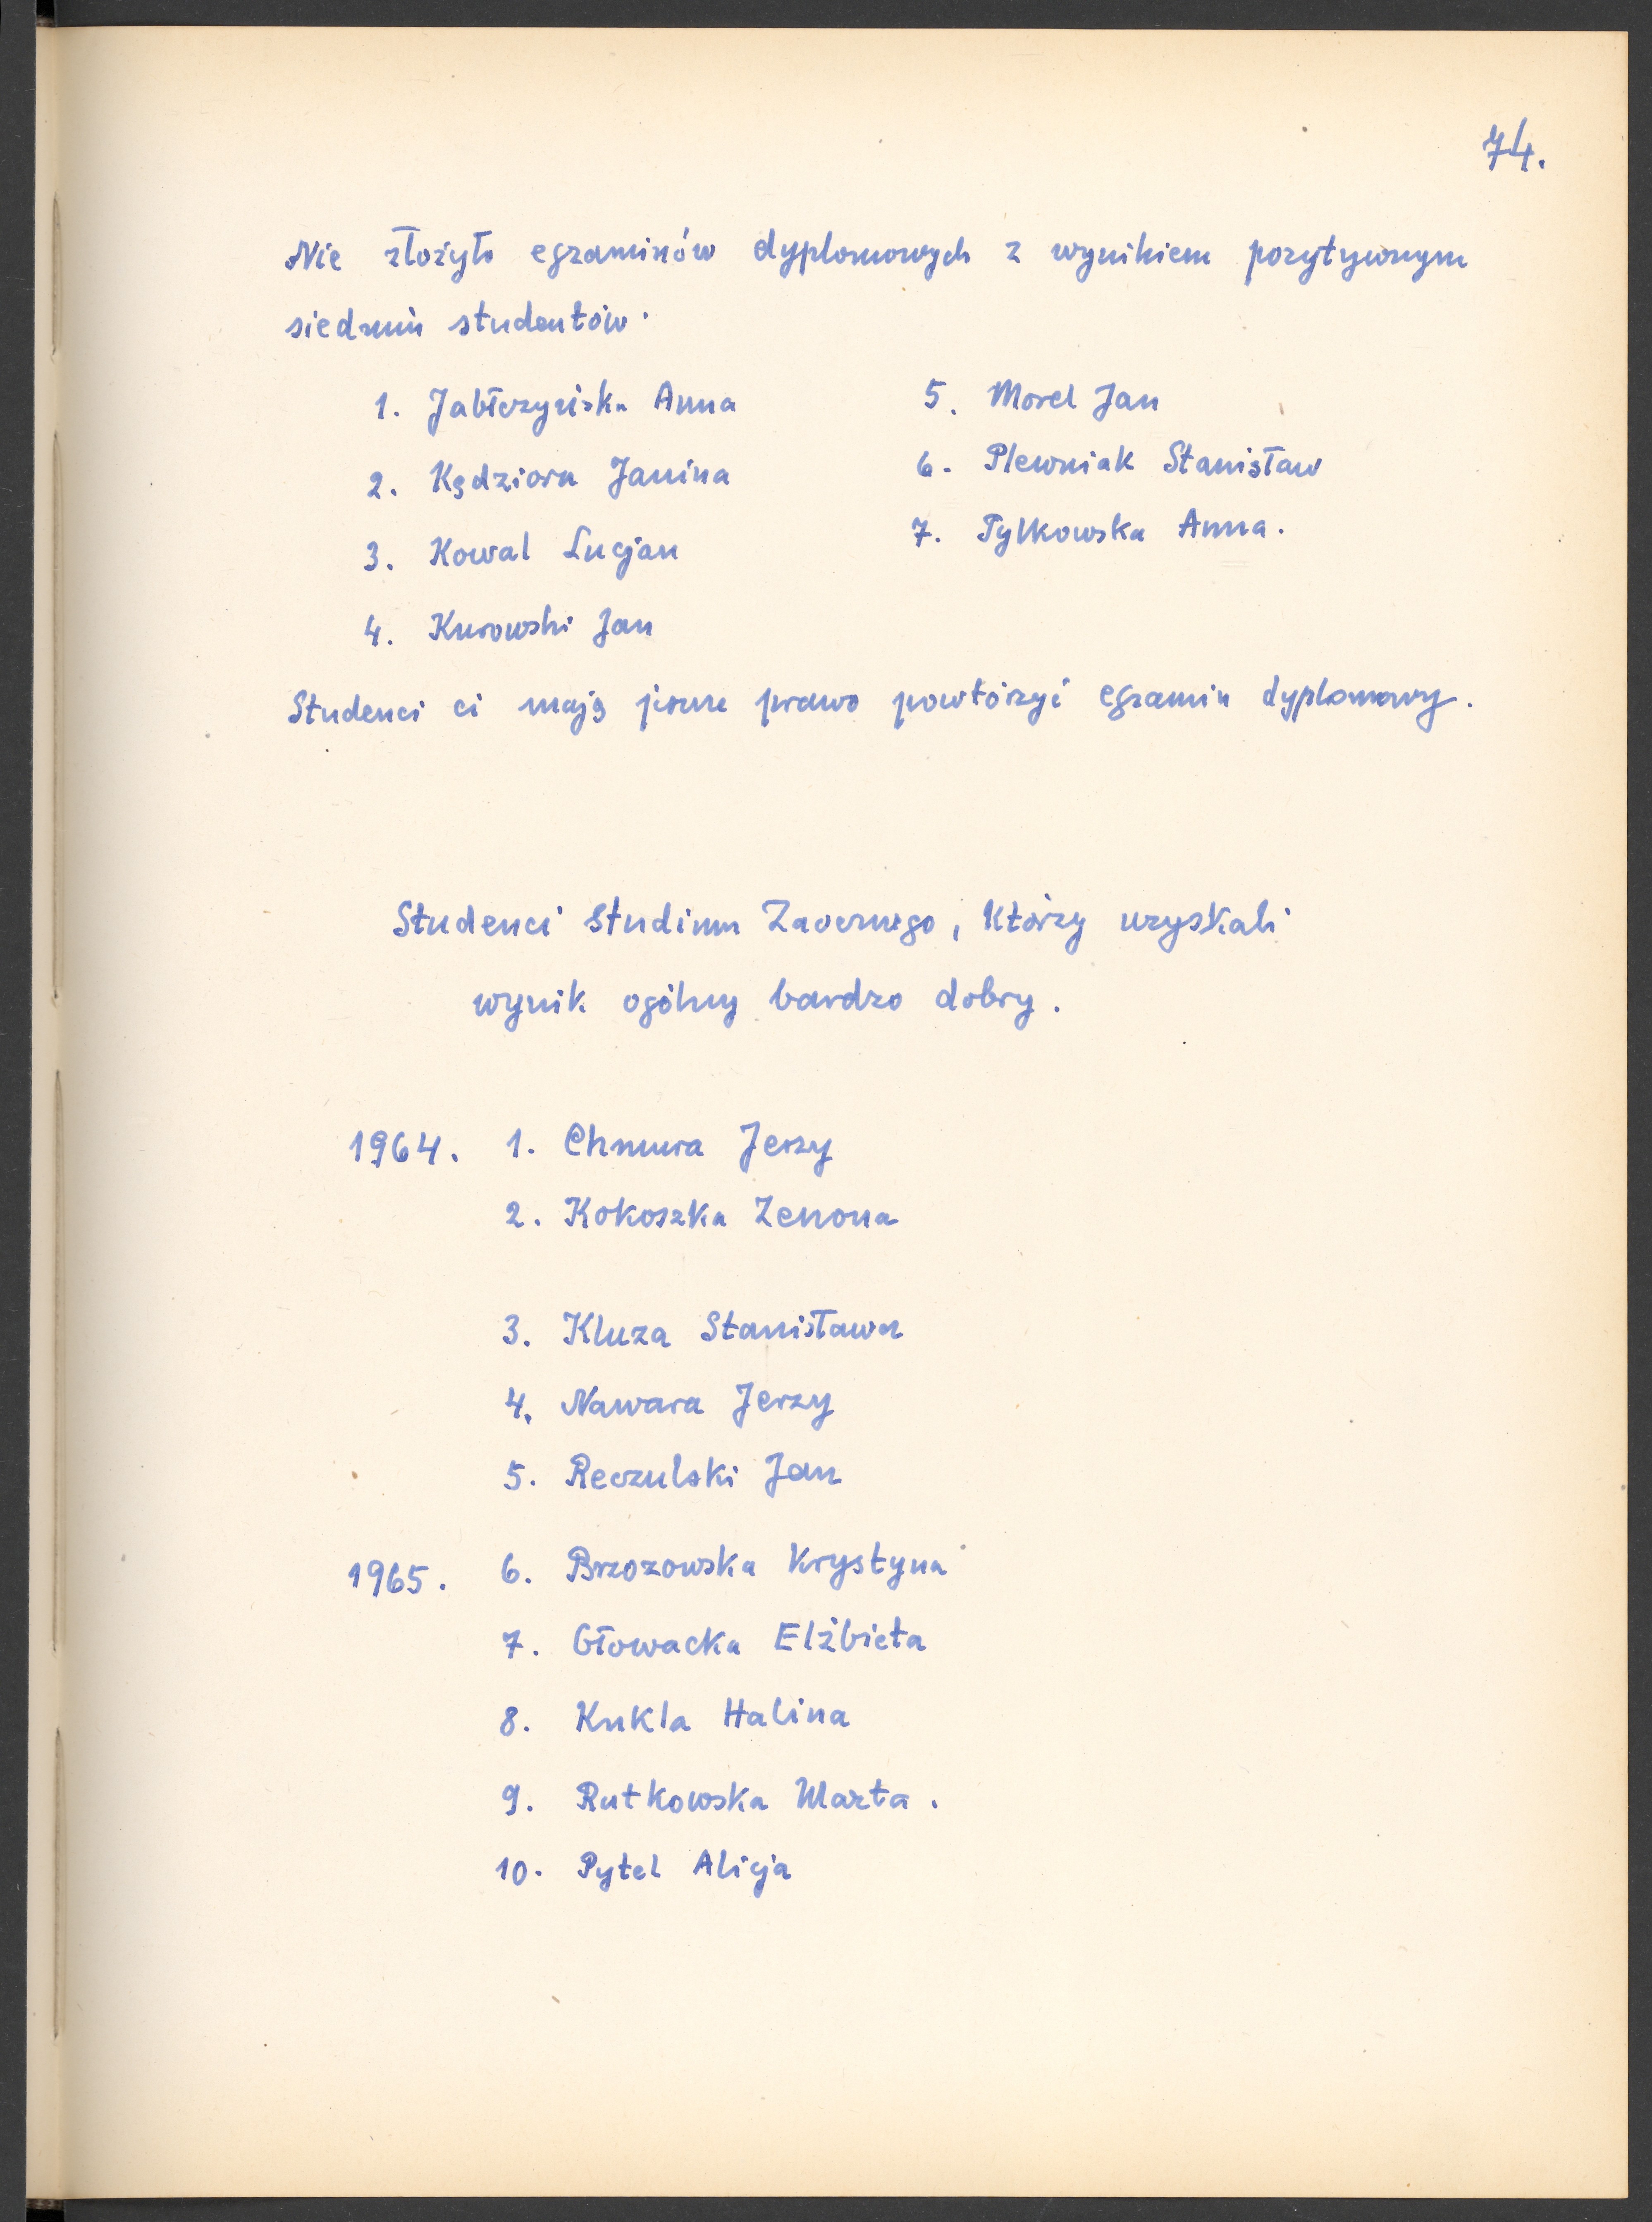 74.
Nie złożyło egzaminów dyplomowych z wynikiem pozytywnym
siedmiu studentów.
1. Jabłczyńska Anna
2. Kędziora Janina
3. Kowal Lucjan
4. Kurowski Jan
5. Morel Jan
6. Plewniak Stanisław
7. Tylkowska Anna.
Studenci ci mają jeszcze prawo powtórzyć egzamin dyplomowy.
Studenci Studium Zaocznego, którzy uzyskali
wynik ogólny bardzo dobry.
1964. 1. Chmura Jerzy
2. Kokoszka Zenona
3. Kluza Stanisława
4. Nawara Jerzy
5. Reczulski Jan
1965. 6. Brzozowska Krystyna
7. Głowacka Elżbieta
8. Kukla Halina
9. Rutkowska Marta.
10. Pytel Alicja